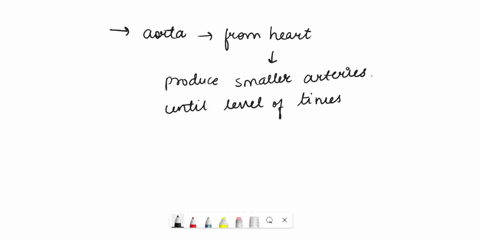 → aorta → from heart
↓
produce smaller arteries.
until level of times